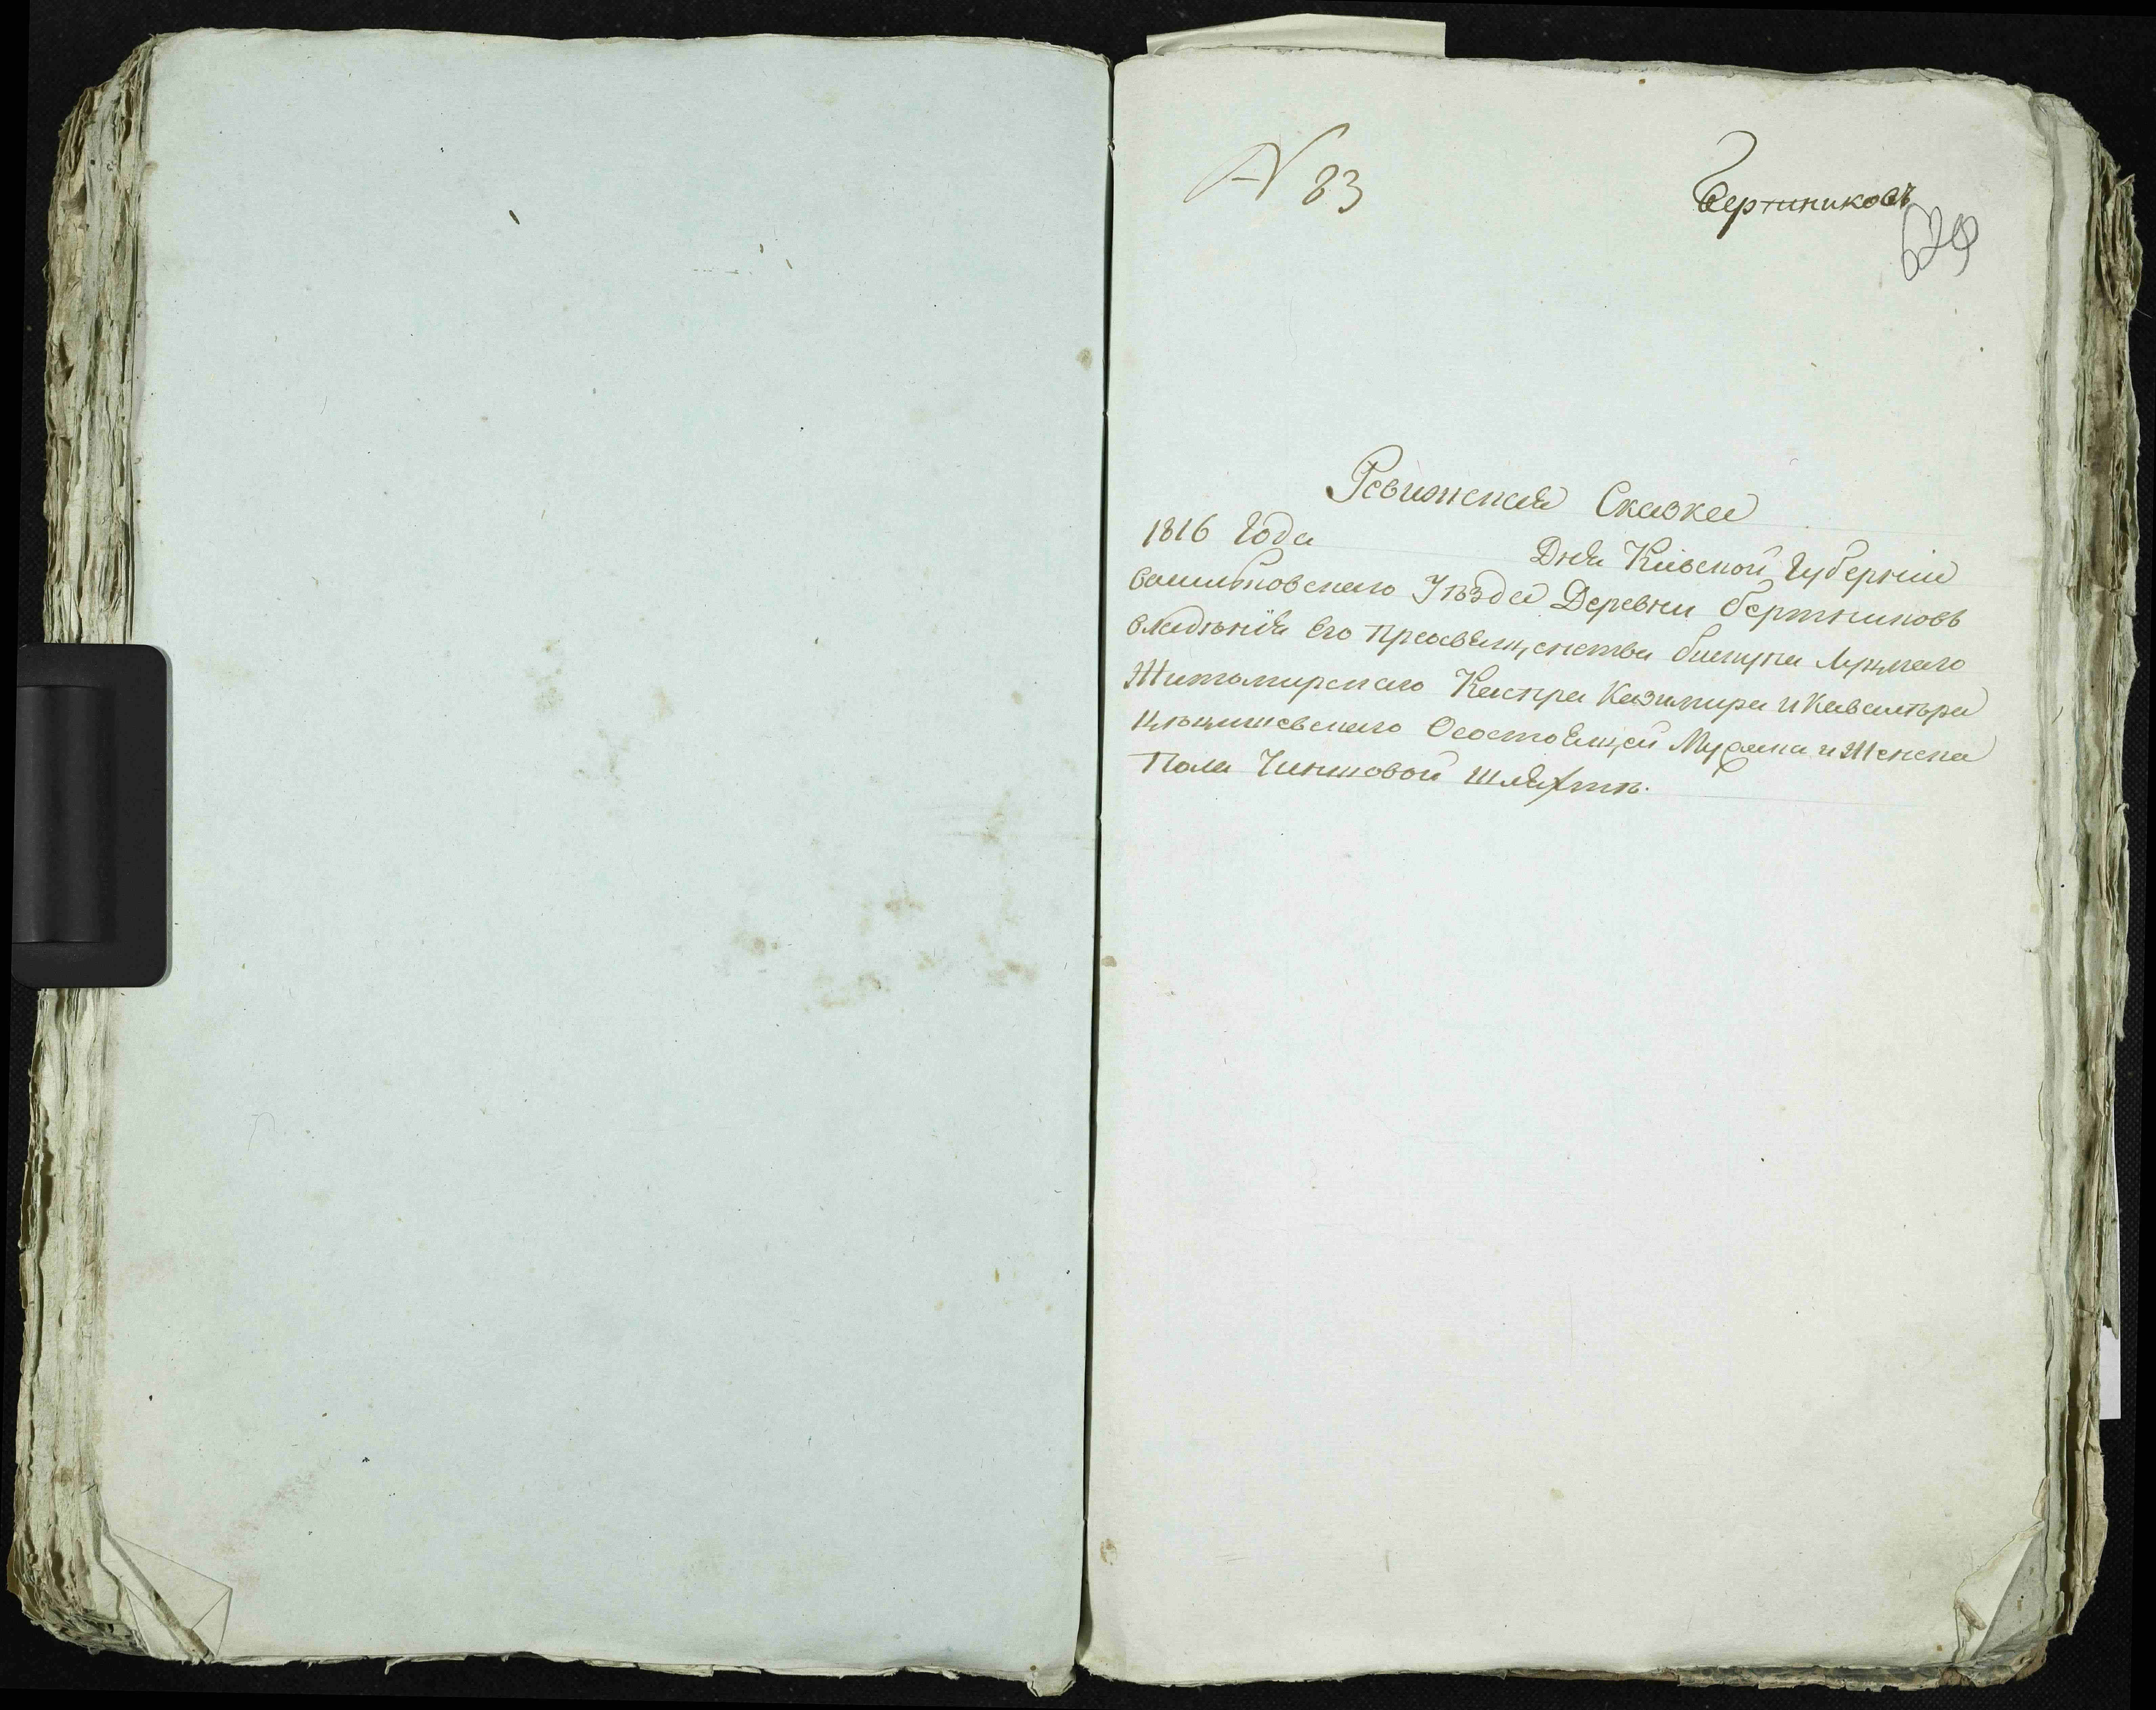 N 83
Бертниковъ
629
Ревижская Сказка
1816 Года Дня Кіевской Губерніи
Васильковскаго Уѣзда Деревни Бертниковъ
владѣнія Его Преосвященства бискупа Луцкаго
Житомирскаго Каспра Казимира и Кавалѣра
Цѣцишевскаго Осостоящей Мужска и Женска
Пола Чиншовой Шляхтѣ.